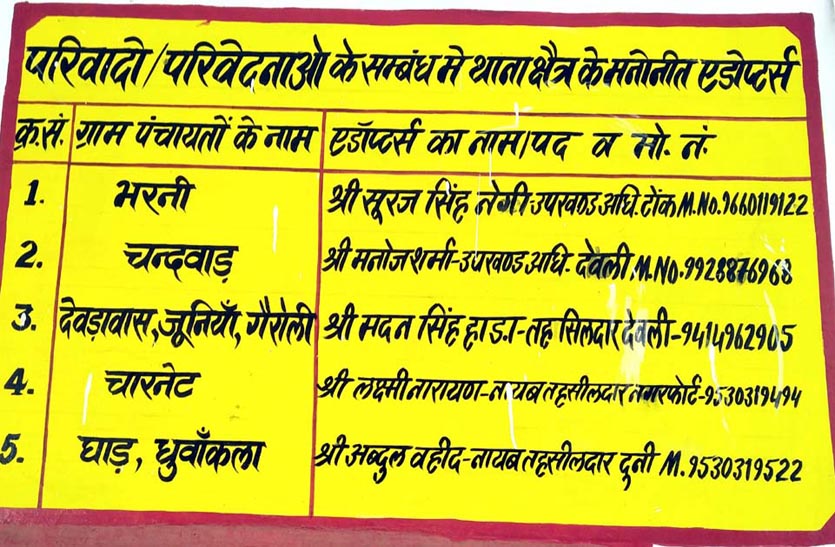 परिवादो/परिवेदनाओ के सम्बंध मे थाना क्षैत्र के मनोनीत एडोप्टर्स
क्र.सं. ग्राम पंचायतों के नाम एडॉप्टर्स का नाम/पद व मो. नं.
1. भरनी श्री सूरज सिंह नेगी-उपखण्ड अधि. टोंक M.No.9660119122
2. चन्दवाड़ श्री मनोज शर्मा-उपखण्ड अधि- देवली, M.No.9928876968
3. देवड़ावास, जूनियाँ, गैरोली श्री मदन सिंह हाड़ा-तहसिलदार देवली-9414962905
4. चारनेट श्री लक्ष्मीनारायण-नायब तहसीलदार नगरफोर्ट-9530319494
5. घाड़, धुवाँकला श्री अब्दुल वहीद-नायब तहसीलदार दुनी M.9530319522